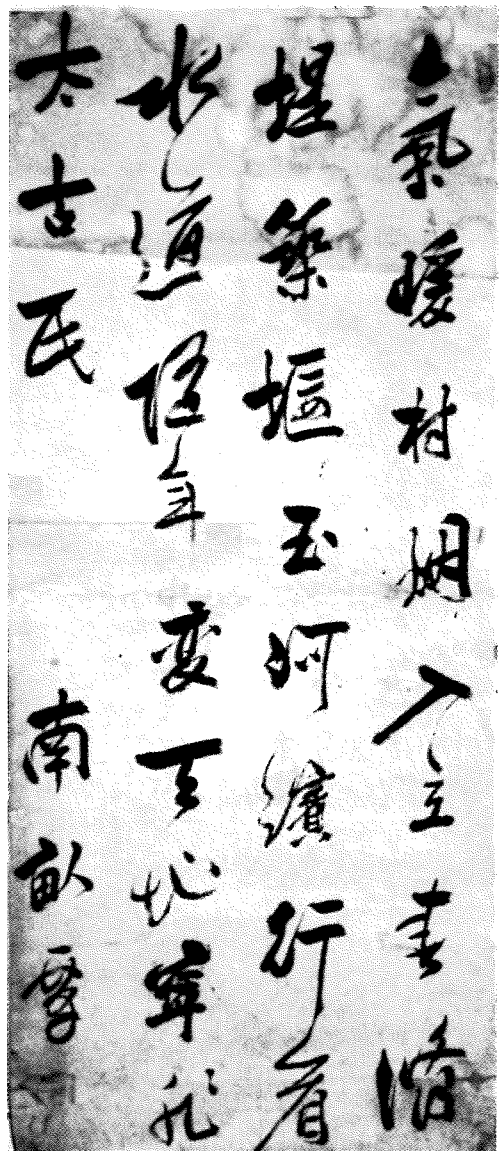 氣暖村烟入立春脩
堤築堰玉河濱行看
水道隨年変天地寧非
太古民 南畝